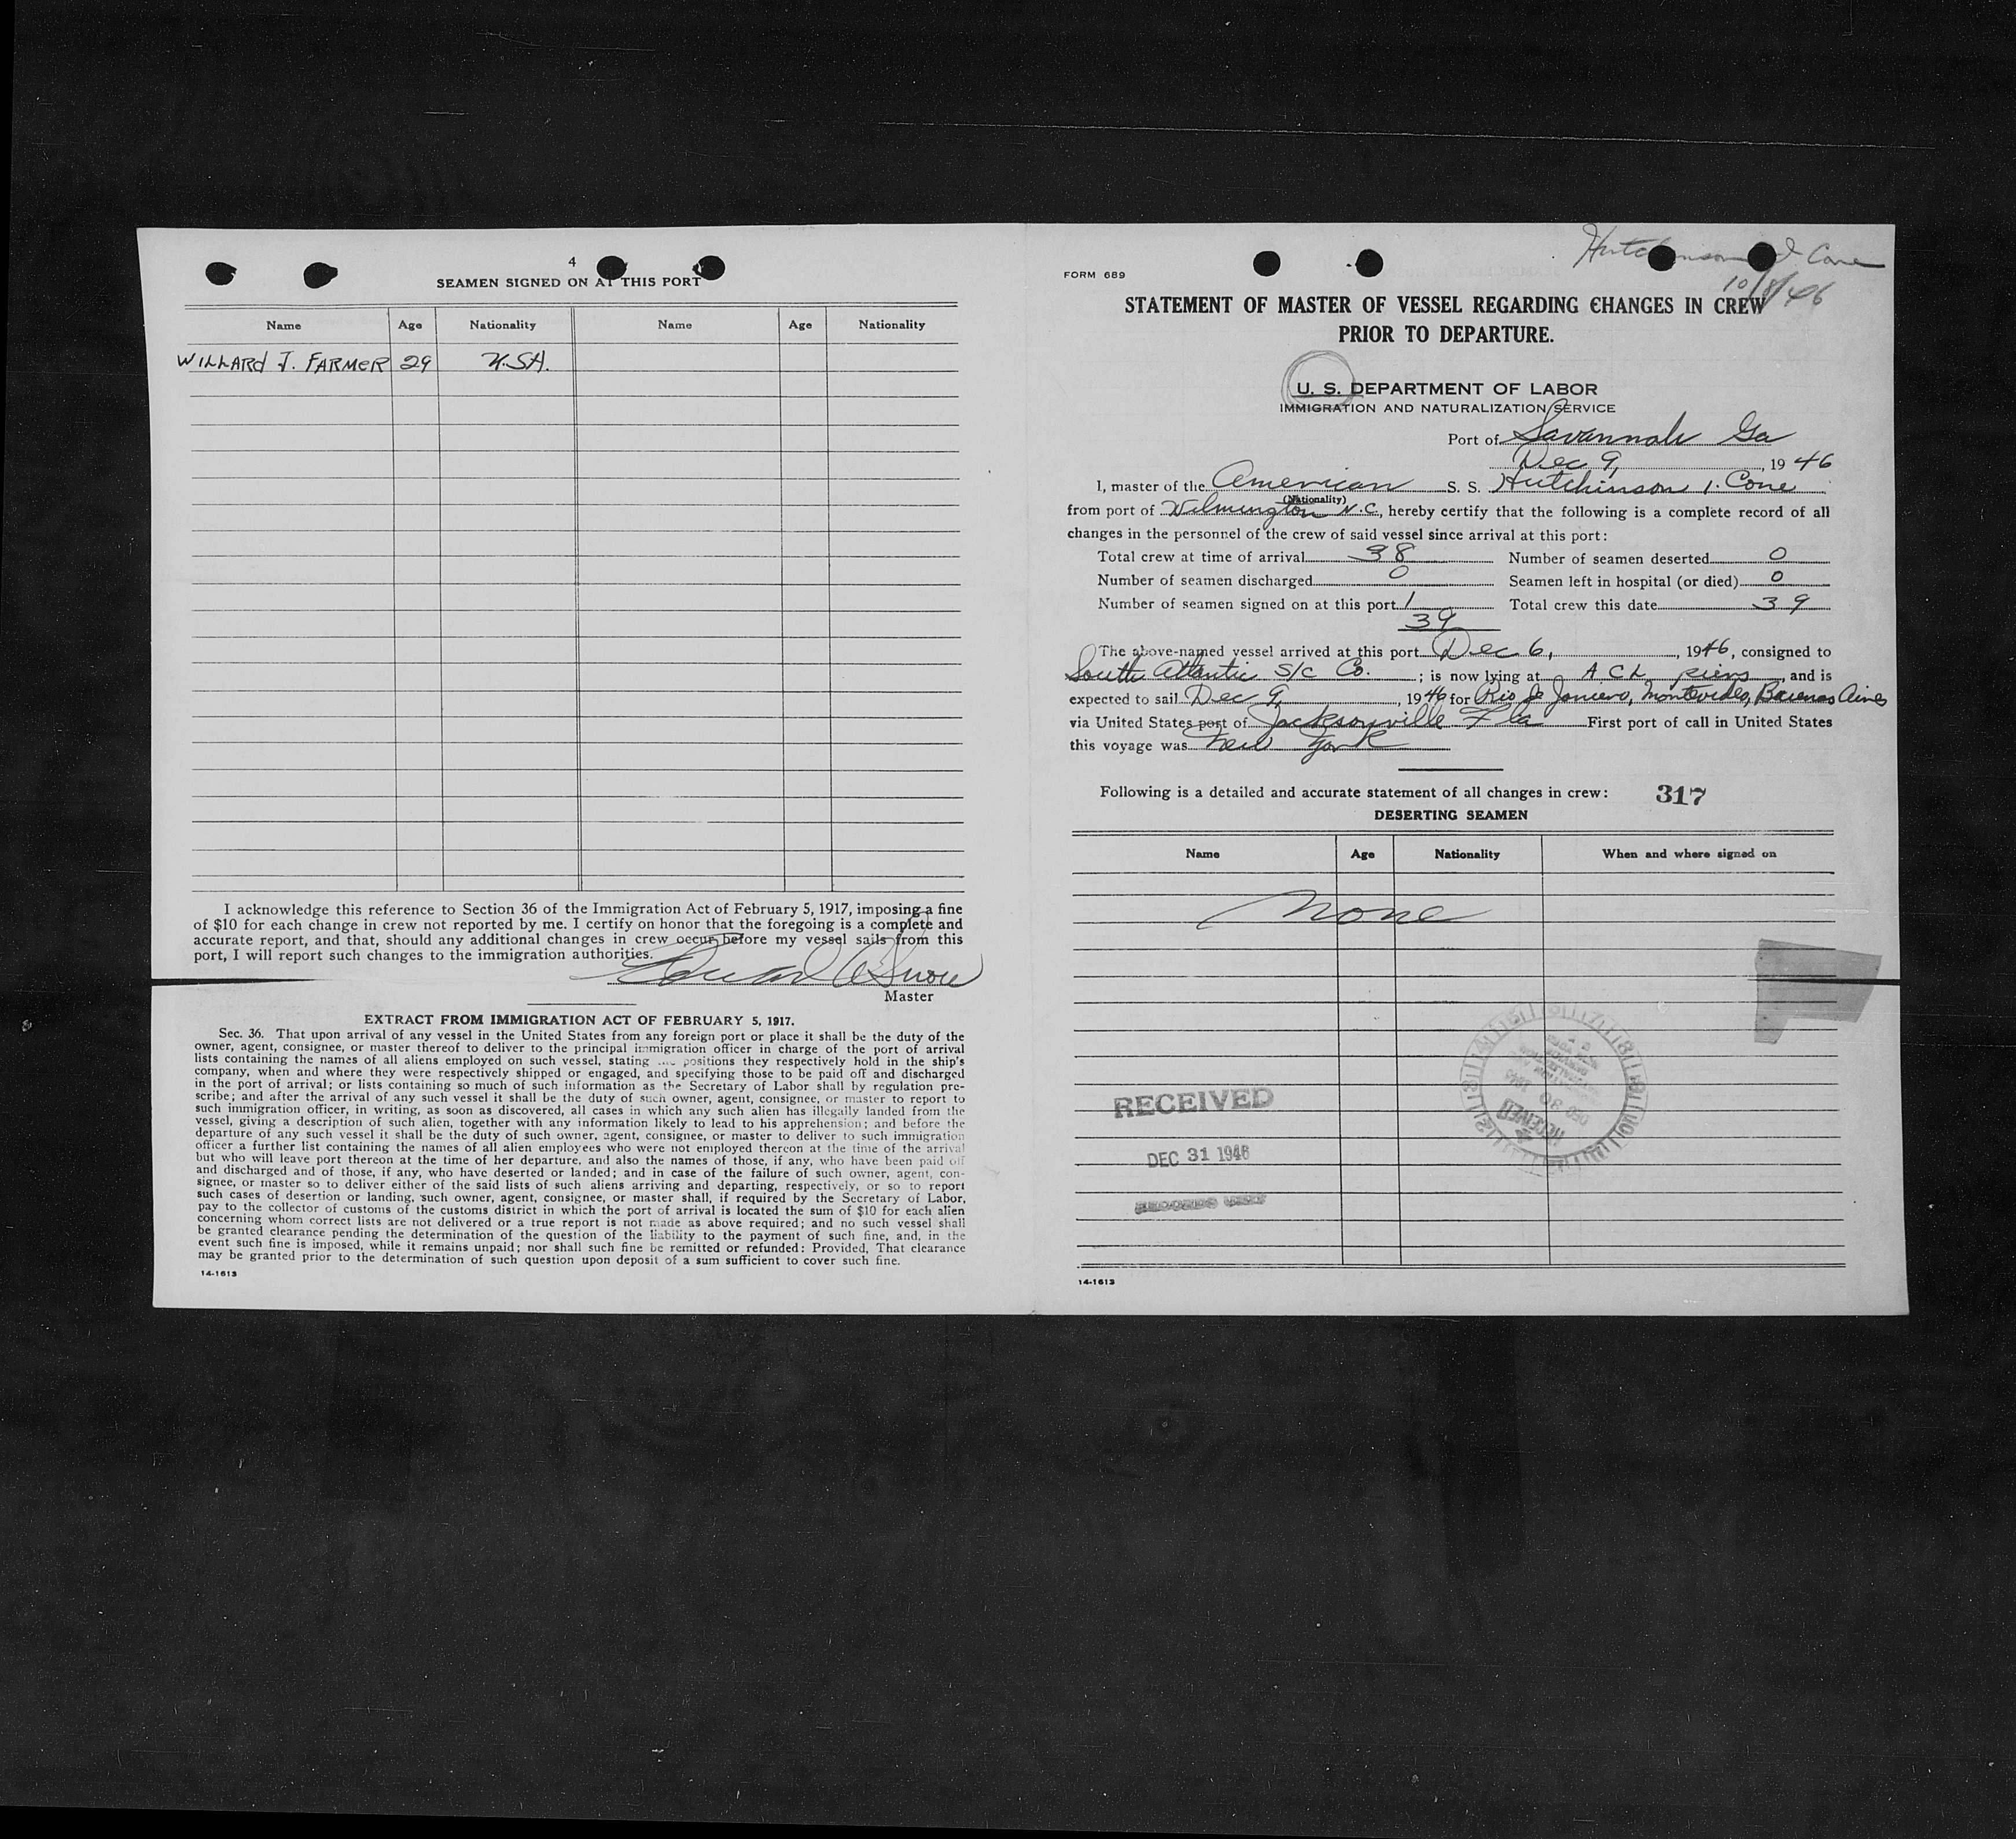 4
SEAMEN SIGNED ON AT THIS PORT
Name Age Nationality Name Age Nationality
WILLARD J. FARMER 29 U.SA.
I acknowledge this reference to Section 36 of the Immigration Act of February 5, 1917, imposing a fine
of $10 for each change in crew not reported by me. I certify on honor that the foregoing is a complete and
accurate report, and that, should any additional changes in crew occur before my vessel sails from this
port, I will report such changes to the immigration authorities.
Master
EXTRACT FROM IMMIGRATION ACT OF FEBRUARY 5, 1917.
Sec. 36. That upon arrival of any vessel in the United States from any foreign port or place it shall be the duty of the
owner, agent, consignee, or master thereof to deliver to the principal immigration officer in charge of the port of arrival
lists containing the names of all aliens employed on such vessel, stating the positions they respectively hold in the ship's
company, when and where they were respectively shipped or engaged, and specifying those to be paid off and discharged
in the port of arrival; or lists containing so much of such information as the Secretary of Labor shall by regulation pre-
scribe; and after the arrival of any such vessel it shall be the duty of such owner, agent, consignee, or master to report to
such immigration officer, in writing, as soon as discovered, all cases in which any such alien has illegally landed from the
vessel, giving a description of such alien, together with any information likely to lead to his apprehension; and before the
departure of any such vessel it shall be the duty of such owner, agent, consignee, or master to deliver to such immigration
officer a further list containing the names of all alien employees who were not employed thereon at the time of the arrival
but who will leave port thereon at the time of her departure, and also the names of those, if any, who have been paid off
and discharged and of those, if any, who have deserted or landed; and in case of the failure of such owner, agent, con-
signee, or master so to deliver either of the said lists of such aliens arriving and departing, respectively, or so to report
such cases of desertion or landing, such owner, agent, consignee, or master shall, if required by the Secretary of Labor,
pay to the collector of customs of the customs district in which the port of arrival is located the sum of $10 for each alien
concerning whom correct lists are not delivered or a true report is not made as above required; and no such vessel shall
be granted clearance pending the determination of the question of the liability to the payment of such fine, and, in the
event such fine is imposed, while it remains unpaid; nor shall such fine be remitted or refunded: Provided, That clearance
may be granted prior to the determination of such question upon deposit of a sum sufficient to cover such fine.
14-1613
Hutchinson I Cone
10/8/46
FORM 689
STATEMENT OF MASTER OF VESSEL REGARDING CHANGES IN CREW
PRIOR TO DEPARTURE.
U. S. DEPARTMENT OF LABOR
IMMIGRATION AND NATURALIZATION SERVICE
Port of Savannah Ga
Dec 9, 1946
I, master of the American S. S. Hutchinson I. Cone
(Nationality)
from port of Wilmington N.C., hereby certify that the following is a complete record of all
changes in the personnel of the crew of said vessel since arrival at this port:
Total crew at time of arrival 38 Number of seamen deserted 0
Number of seamen discharged 0 Seamen left in hospital (or died) 0
Number of seamen signed on at this port 1 Total crew this date 39
39
The above-named vessel arrived at this port Dec 6, 1946, consigned to
South Atlantic S/C Co. ; is now lying at A C L piers, and is
expected to sail Dec 9, 1946 for Rio de Janiero, Montevideo, Buenos Aires
via United States port of Jacksonville Fla First port of call in United States
this voyage was New York
Following is a detailed and accurate statement of all changes in crew: 317
DESERTING SEAMEN
Name Age Nationality When and where signed on
None
RECEIVED
DEC 31 1946
RECORDS UNIT
RECEIVED
DEC 30 1946
14-1613